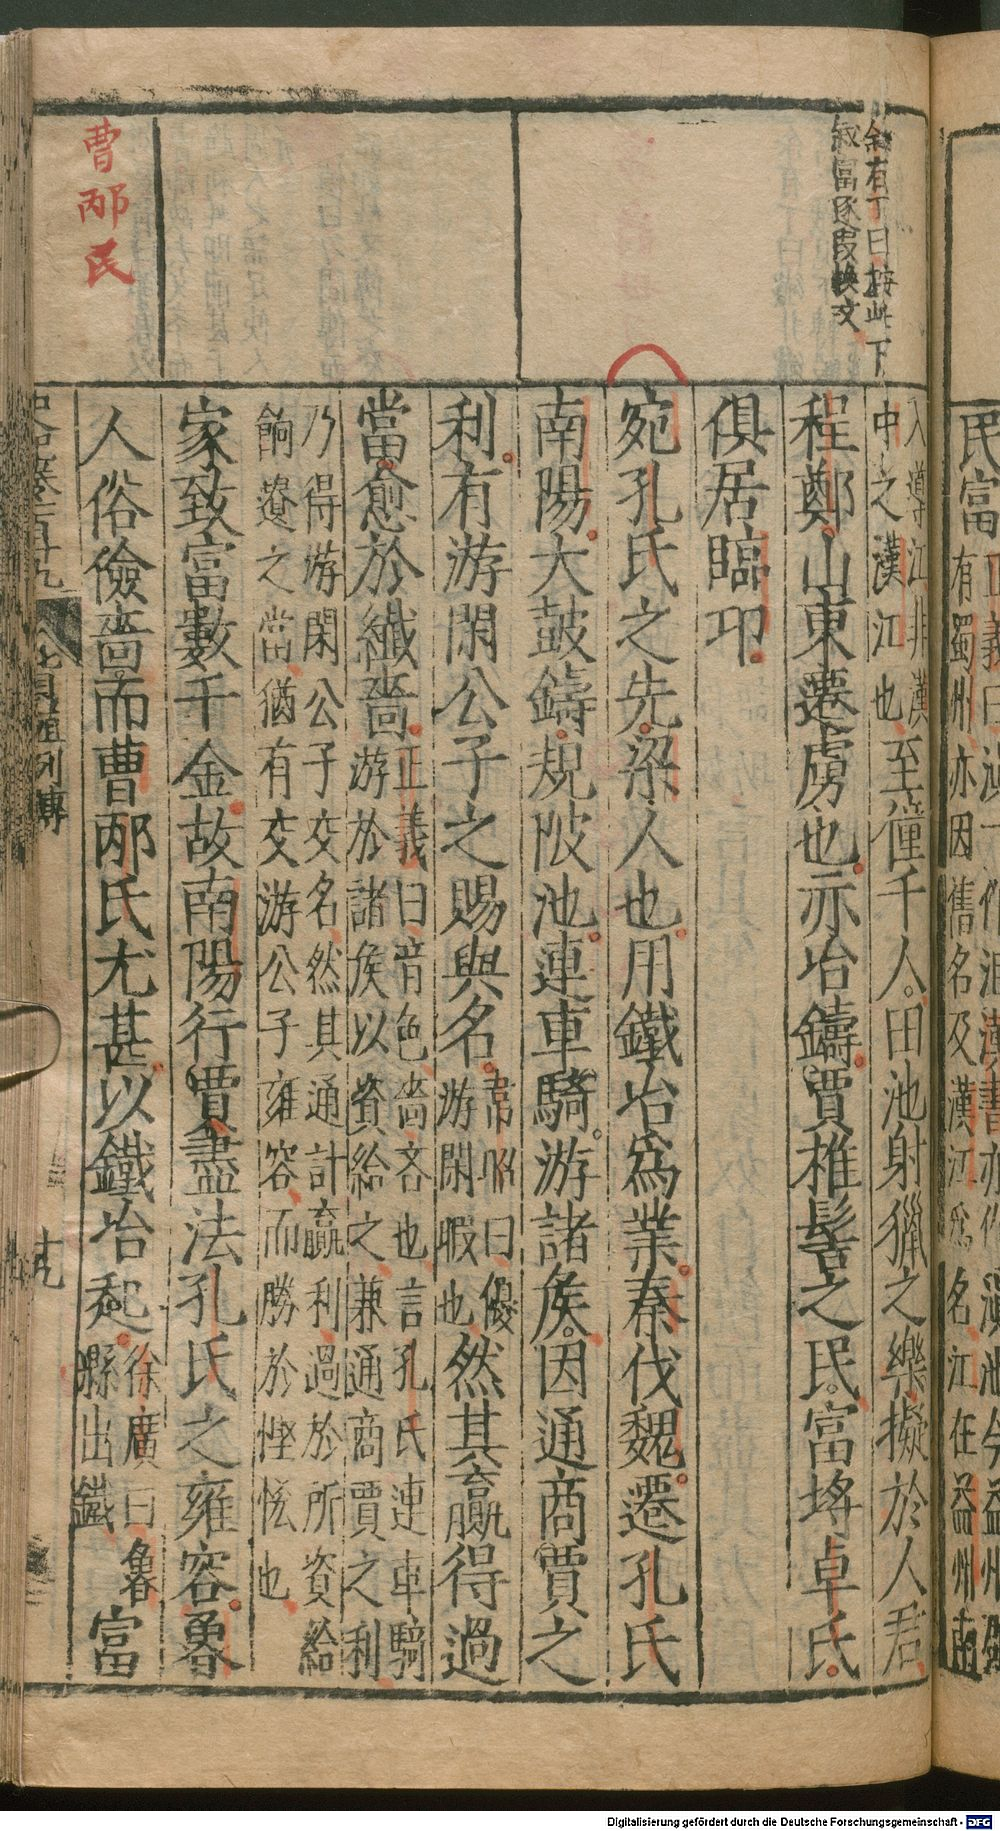 民富
正義曰
有蜀州亦因舊名及漢江爲名江在益州南
敘有丁曰按此下
敘富逐段換文
入導江非漢
中之漢江也
至僮千人田池射獵之樂擬於人君
程鄭山東遷虜也亦冶鑄賈椎髻之民富埒卓氏
俱居臨邛
宛孔氏之先梁人也用鐵冶爲業秦伐魏遷孔氏
南陽大鼓鑄規陂池連車騎游諸侯因通商賈之
利有游閑公子之賜與名
韋昭曰優
游閑暇也
然其贏得過
當愈於纖嗇
正義曰音色嗇吝也言孔氏連車騎
游於諸侯以資給之兼通商賈之利
乃得游閑公子交名然其通計贏利過於所資給
餉遺之當猶有交游公子雍容而勝於慳恡也
家致富數千金故南陽行賈盡法孔氏之雍容魯
人俗儉嗇而曹邴氏尤甚以鐵冶起
徐廣曰魯
縣出鐵
富
曹邴民
史記卷一百二十九
貨殖列傳
十九
Digitalisierung gefördert durch die Deutsche Forschungsgemeinschaft - DFG